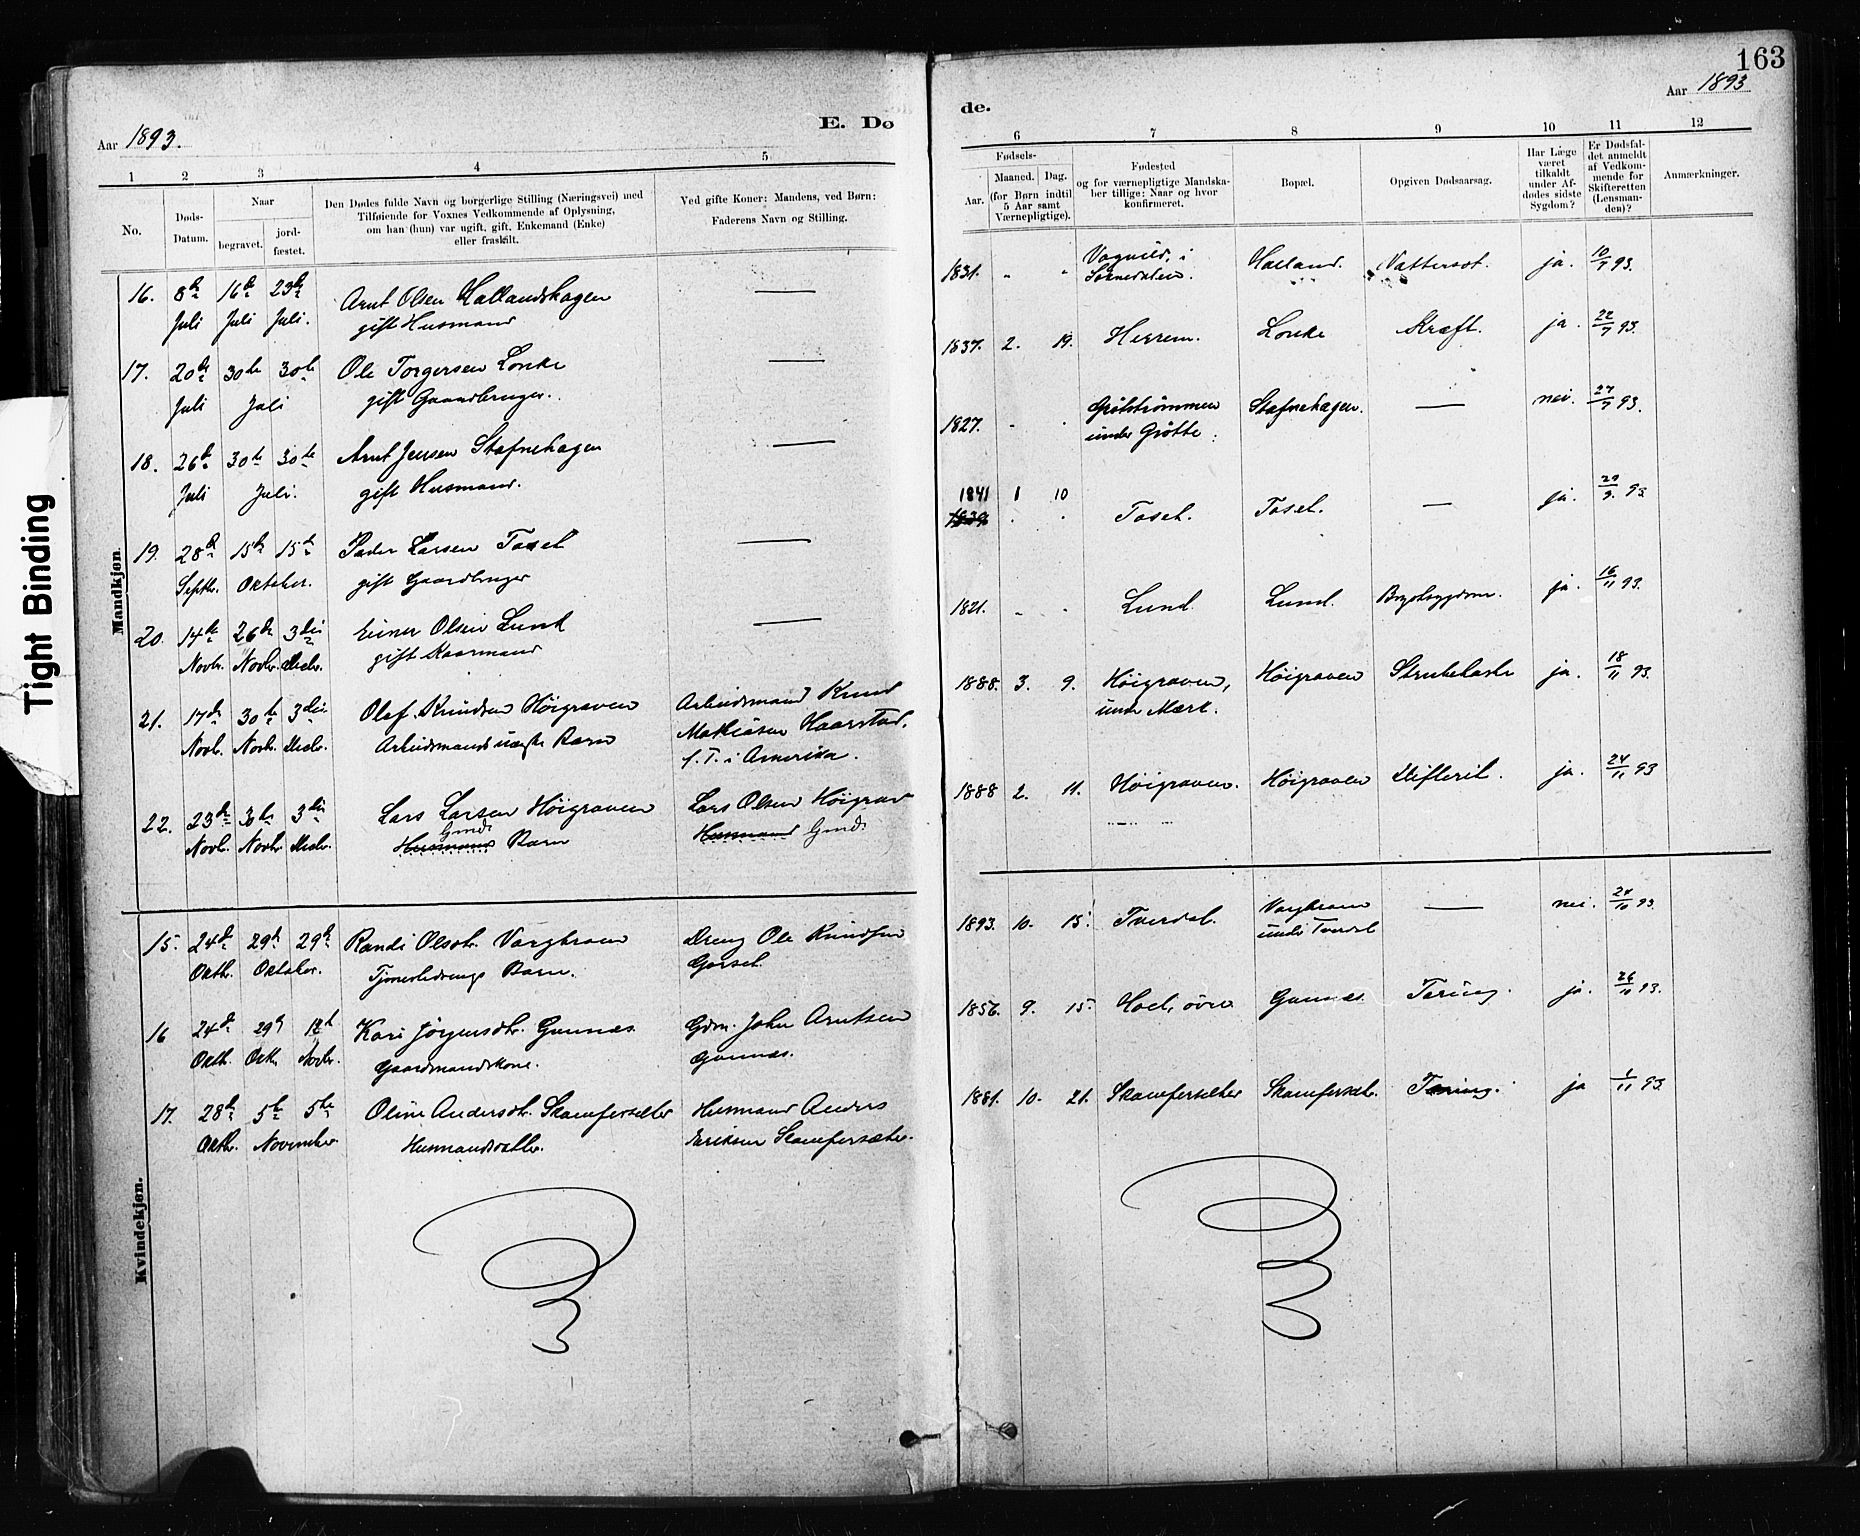 163
Aar 1893.
E. Dø
de.
Aar 1893
1 2 3 4 5
6 7 8 9 10 11 12
No.
Døds-Datum.
Naar
begravet.
jord-fæstet.
Den Dødes fulde Navn og borgerlige Stilling (Næringsvei) med
Tilføiende for Voxnes Vedkommende af Oplysning,
om han (hun) var ugift, gift, Enkemand (Enke)
eller fraskilt.
Ved gifte Koner: Mandens, ved Børn:
Faderens Navn og Stilling.
Fødsels-
Aar.
Maaned. Dag.
(for Børn indtil
5 Aar samt
Værnepligtige).
Fødested
og for værnepligtige Mandska-
ber tillige: Naar og hvor
konfirmeret.
Bopæl.
Opgiven Dødsaarsag.
Har Læge
været
tilkaldt
under Af-
dødes sidste
Sygdom?
Er Dødsfal-
det anmeldt
af Vedkom-
mende for
Skifteretten
(Lensman-
den)?
Anmærkninger.
Tight Binding
Mandkjøn.
16. 8de 16de 23de Arnt Olsen Hallandshagen —
Juli Juli Juli. gift Husmand
1831. - - Vognild, i Halland. Vattersot. ja. 10/7 93.
17. 20de 30te 30te Ole Torgersen Lonke —
Juli Juli gift Gaardbruger.
1837. 2. 19. Herrem. Lonke Kræft. ja. 22/7 93.
18. 26de 30te 30te Arnt Jensen Stafnehagen —
Juli Juli. gift Husmand.
1827. - - Grötströmmen Stafnehagen. — nei. 27/7 93.
under Grötte.
19. 28de 15de 15de Peder Larsen Toset —
Septbr. Oktober. gift Gaardbruger
1841 1 10
1839 Toset. Toset. — ja. 29/9. 93.
20. 14de 26de 3die Einer Olsen Lund —
Novbr. Novbr. Decbr. gift Kaarmand
1821. - - Lund. Lund. Brystsygdom. ja. 16/11 93.
21. 17de 30te 3die Olaf Knudsen Höigraven Arbeidsmand Knud
Novbr. Novbr. Decbr. Arbeidsmands uægte Barn Mathiasen Haarstad.
f. T. i Amerika.
1888. 3. 9. Höigraven, Höigraven Strubehoste ja. 18/11 93.
under Mærk.
22. 23de 30te 3die Lars Larsen Höigraven Lars Olsen Höigrav
Gmds
Novbr. Novbr. Decbr. Husmands Barn Husmand Gmd.
1888 2. 11. Höigraven. Höigraven Difterit. ja. 24/11 93
Kvindekjøn.
15. 24de 29de 29de Randi Olsdtr. Vorghroen Dreng Ole Knudsen
Oktbr. Oktober. Tjenestedrengs Barn. Gorset.
1893. 10. 15. Tverdal. — nei. 24/10 93.
under Tverdal
16 24de 29de Kari Jörgensdtr. Gunnes Gdm. John Arntsen
Oktbr. Oktbr. Novbr. Gaardmandskone. Gunnes.
1856. 9. 15. Hoel, övre Gunnes. Tæring. ja. 26/10 93.
17. 28de 5te 5te Oline Andersdtr. Skamfersæter Husmand Anders
Oktbr. November Husmandsdatter. Eriksen Skamfersæter.
1881. 10. 21. Skamfersæter Skamfersæt. Tæring. ja 1/11 93.